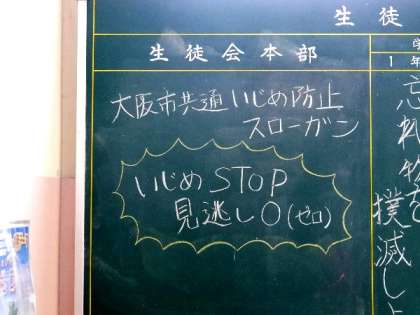 生徒
生徒会本部
大阪市共通いじめ防止
スローガン
いじめSTOP
見逃し0(ゼロ)
学
1年
忘れ物を
撲滅しよ